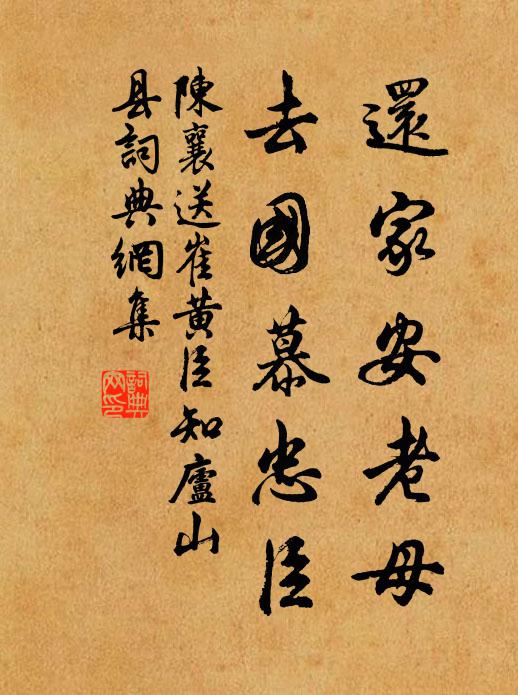 還家安老母
去國慕忠臣
陳襄送崔黃臣知廬山
县詞典網集
詞典网印